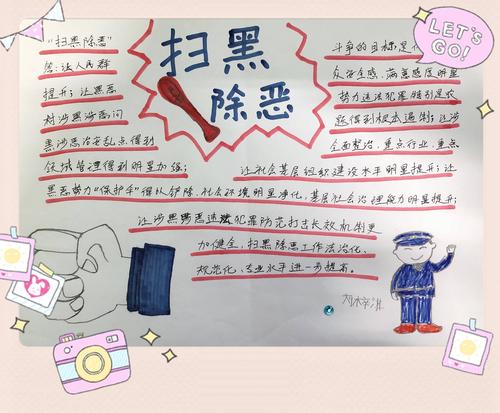 LET'S
GO!
扫黑
除恶
"扫黑除恶"
斗争的目标是
让人民群
众安全感、满意度明显
提升;让黑恶
势力违法犯罪特别是农
村涉黑涉恶问
题得到根本遏制;让涉
黑涉恶治安乱点得到
全面整治、重点行业、重点
领域管理得到明显加强;
让社会基层组织建设水平明显提升;让
黑恶势力"保护伞"得以铲除,社会环境明显净化,基层社会治理能力明显提升;
让涉黑涉恶违法犯罪防范打击长效机制更
加健全,扫黑除恶工作法治化、
规范化、专业水平进一步提高。